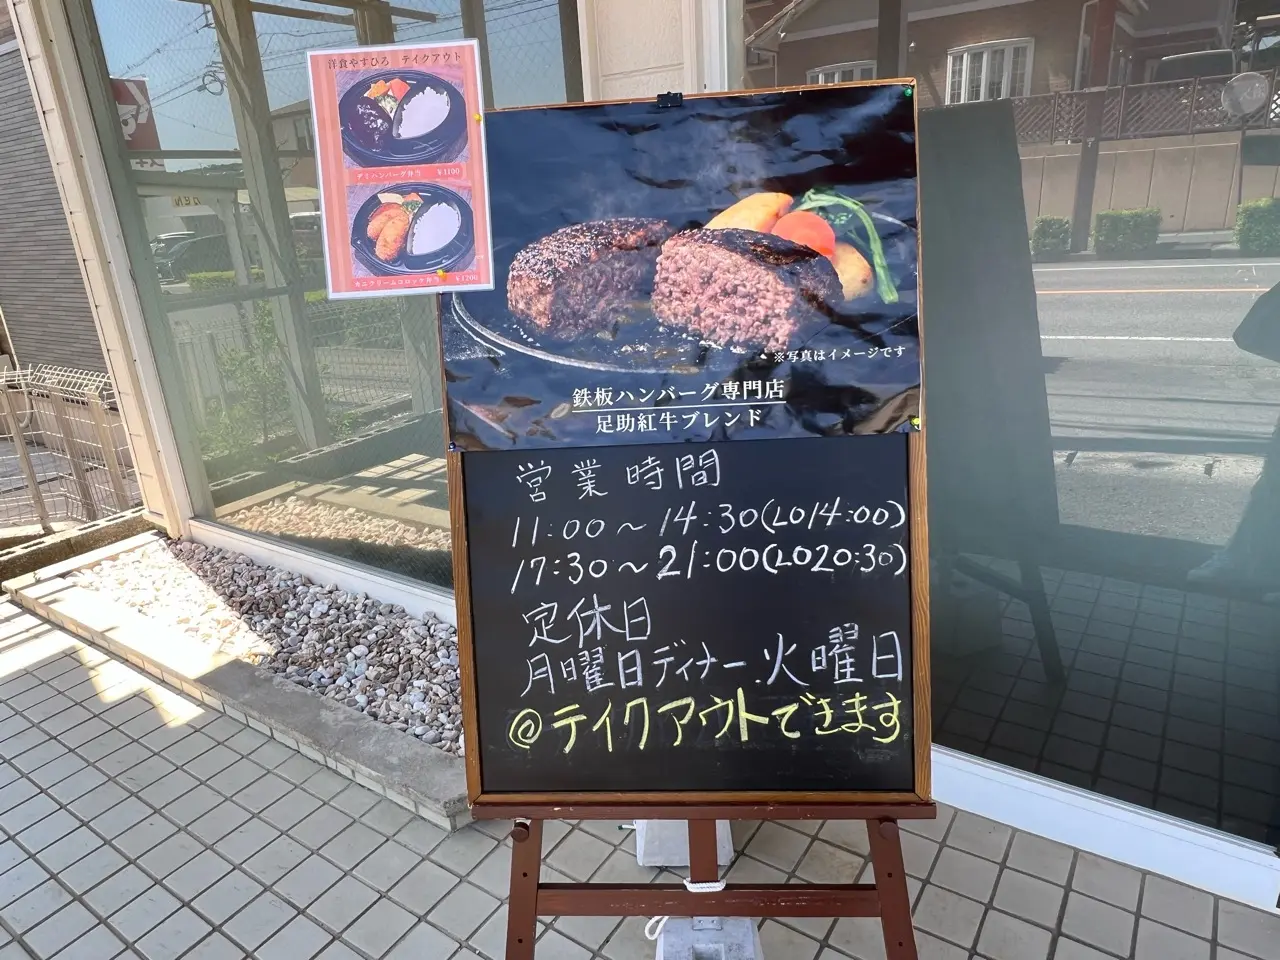 洋食やすひろ テイクアウト
デミハンバーグ弁当 ¥1100
カニクリームコロッケ弁当 ¥1200
※写真はイメージです
鉄板ハンバーグ専門店
足助紅牛ブレンド
営業時間
11:00~14:30(LO14:00)
17:30~21:00(LO20:30)
定休日
月曜日ディナー.火曜日
@テイクアウトできます